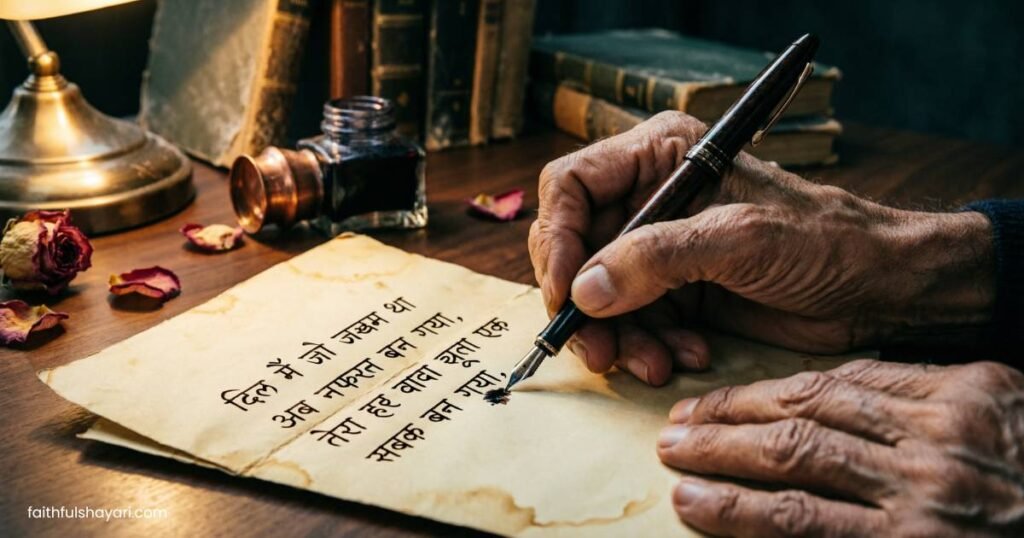 दिल में जो जख़्म था
अब नफरत बन गया,
तेरा हर वादा झूठा एक
सबक बन गया,
faithfulshayari.com